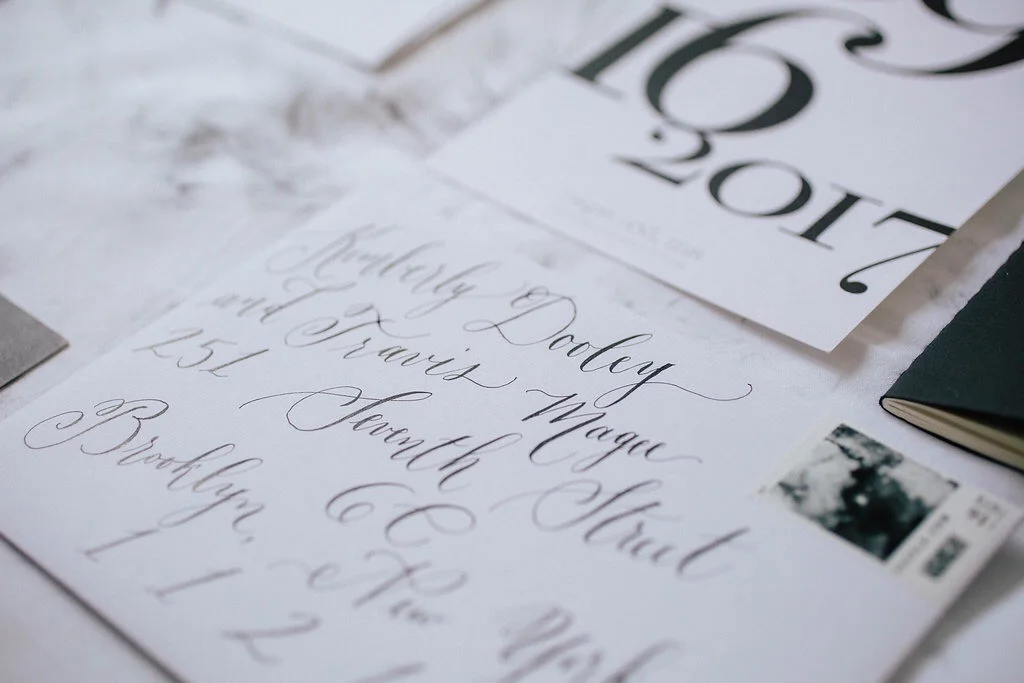 Kimberly Dooley
and Travis Magee
251 Seventh Street
6C
Brooklyn, New York
1 1 2
16
2017